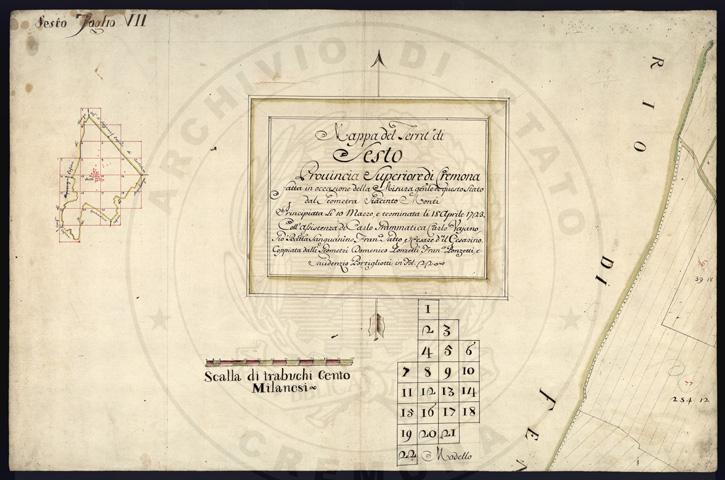 Sesto Foglio VII
Mappa del Territ.o di
Sesto
Prouincia Superiore di Cremona
fatta in occazione della Misura gn'le di questo Stato
dal Geometra Giacinto Monti
Principiata li 10 Marzo, e terminata li 18 Aprile 1723.
Coll'assistenza di Carlo Carlo Vajano
Gio Batta Sanguanino, Fran.o
Coppiata dalli Geometri Domenico Fran.o Ponzetti, e
Gaudenzio Portigliotti in fol. 22
Scalla di trabuchi Cento
Milanesi
1
2 3
4 5 6
7 8 9 10
11 12 13 14
15 16 17 18
19 20 21
22 Modello
RIO DI FEN
39 18
254 12
ARCHIVIO DI STATO
CREMONA